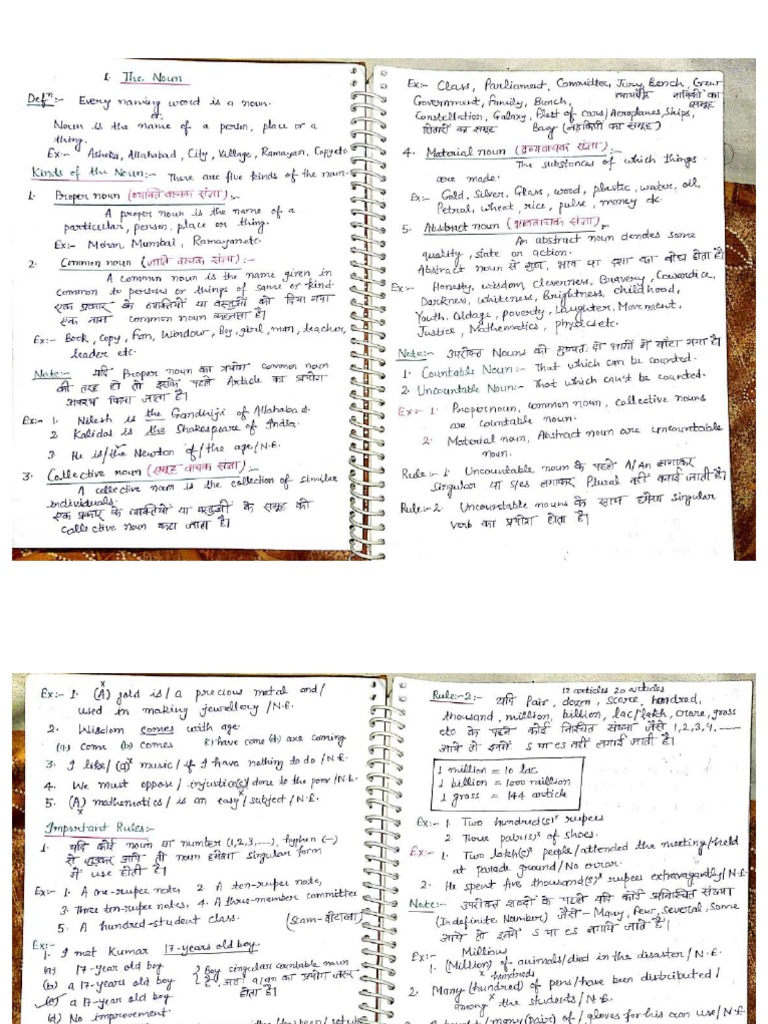 1. The Noun
Defⁿ:- Every naming word is a noun.
or.
Noun is the name of a person, place or a
thing.
Ex:- Ashoka, Allahabad, City, Village, Ramayan, Copy etc
Kinds of the Noun:- There are five kinds of the noun.
1. Proper noun (व्यक्तिवाचक संज्ञा):-
A proper noun is the name of a
particular, person, place or thing.
Ex:- Mohan, Mumbai, Ramayan etc.
2. Common noun (जाति वाचक संज्ञा):-
A common noun is the name given in
common to persons or things of same or kind.
एक प्रकार के व्यक्तियों या वस्तुओं को दिया गया
एक नाम common noun कहलाता है।
Ex:- Book, copy, Fan, Window, Boy, girl, man, teacher,
leader etc.
Note:- यदि Proper noun का प्रयोग common noun
की तरह हो तो इसके पहले Article का प्रयोग
अवश्य किया जाता है।
Ex:- 1. Nilesh is the Gandhiji of Allahabad.
2 Kalidas is the Shakespeare of India.
3 He is/the Newton of/the age/N.E.
3. Collective noun (समूह वाचक संज्ञा):-
A collective noun is the collection of similar
individuals.
एक प्रकार के व्यक्तियों या वस्तुओं के समूह को
collective noun कहा जाता है।
Ex:- Class, Parliament, Committee, Jury, Bench, Crew
न्यायपीठ नाविकों का समूह
Government, Family, Bunch,
Constellation, Galaxy, Fleet of cars/Aeroplanes, Ships,
सितारों का समूह Bevy (लड़कियों का समूह)
4. Material noun (द्रव्यवाचक संज्ञा):-
The substances of which things
are made.
Ex:- Gold, Silver, Glass, wood, plastic, water, oil,
Petrol, wheat, rice, pulse, money etc.
5. Abstract noun (भाववाचक संज्ञा):-
An abstract noun denotes some
quality, state or action.
Abstract noun से गुण, भाव या दशा का बोध होता है।
Ex:- Honesty, wisdom, cleverness, Bravery, Cowardice,
Darkness, whiteness, Brightness, childhood,
Youth, Oldage, poverty, Laughter, Movement,
Justice, Mathematics, physics etc.
Note:- उपरोक्त Nouns को मुख्यतः दो भागों में बांटा गया है।
1. Countable Noun:- That which can be counted.
2. Uncountable Noun:- That which can't be counted.
Ex:- 1. Proper noun, common noun, collective nouns
are countable noun.
2. Material noun, Abstract noun are uncountable
noun.
Rule:- 1. Uncountable noun के पहले A/An लगाकर
Singular या s/es लगाकर Plural नहीं बनाई जाती है।
Rule:-2. Uncountable nouns के साथ हमेशा singular
verb का प्रयोग होता है।
Ex:- 1. (A)x gold is/a precious metal and/
used in making jewellery/N.E.
2. Wisdom comes with age.
(a) come (b) comes (c) have come (d) are coming
3. I like/(a)x music/if I have nothing to do/N.E.
4. We must oppose/injustice(s)x/done to the poor/N.E.
5. (A)x mathematics/is an easy/subject/N.E.
Important Rules:-
1. यदि कोई noun या number (1,2,3,....), hyphen (-)
से जुड़कर आये तो noun हमेशा singular form
में use होती है।
Ex:- 1. A one-rupee note, 2 A ten-rupee note,
3. Three ten-rupee notes, 4. A three-member committee
5. A hundred-student class. (Scam-घोटाला)
Ex:-
1. I met Kumar 17-years old boy.
(a) 17-year old boy
(b) a 17-years old boy
(c) a 17-year old boy
(d) No improvement
{Boy singular countable noun
है अतः a/an का प्रयोग जरूर
होता है।}
12 articles 20 articles
Rule:-2:- यदि Pair, dozen, score, hundred,
thousand, million, billion, lac/lakh, crore, gross
etc के पहले कोई निश्चित संख्या जैसे 1,2,3,4,....
आये तो इनमें s या es नहीं लगाई जाती है।
1 million = 10 lac
1 billion = 1000 million
1 gross = 144 article
Ex:- 1. Two hundred(s)x rupees
2. Three pair(s)x of shoes.
Ex:- 1. Two lakh(s)x people/attended the meeting/held
at parade ground/No error.
2. He spent five thousand(s)x rupees extravagantly/N.E.
Note:- उपरोक्त शब्दों के पहले यदि कोई अनिश्चित संख्या
(Indefinite Number) जैसे - Many, few, several, some
आये तो इनमें s या es लगाये जाते हैं।
Ex:- Millions
1. (Million) of animals/died in the disaster/N.E.
x hundreds
2. Many (hundred) of pens/have been distributed/
among x the students/N.E.